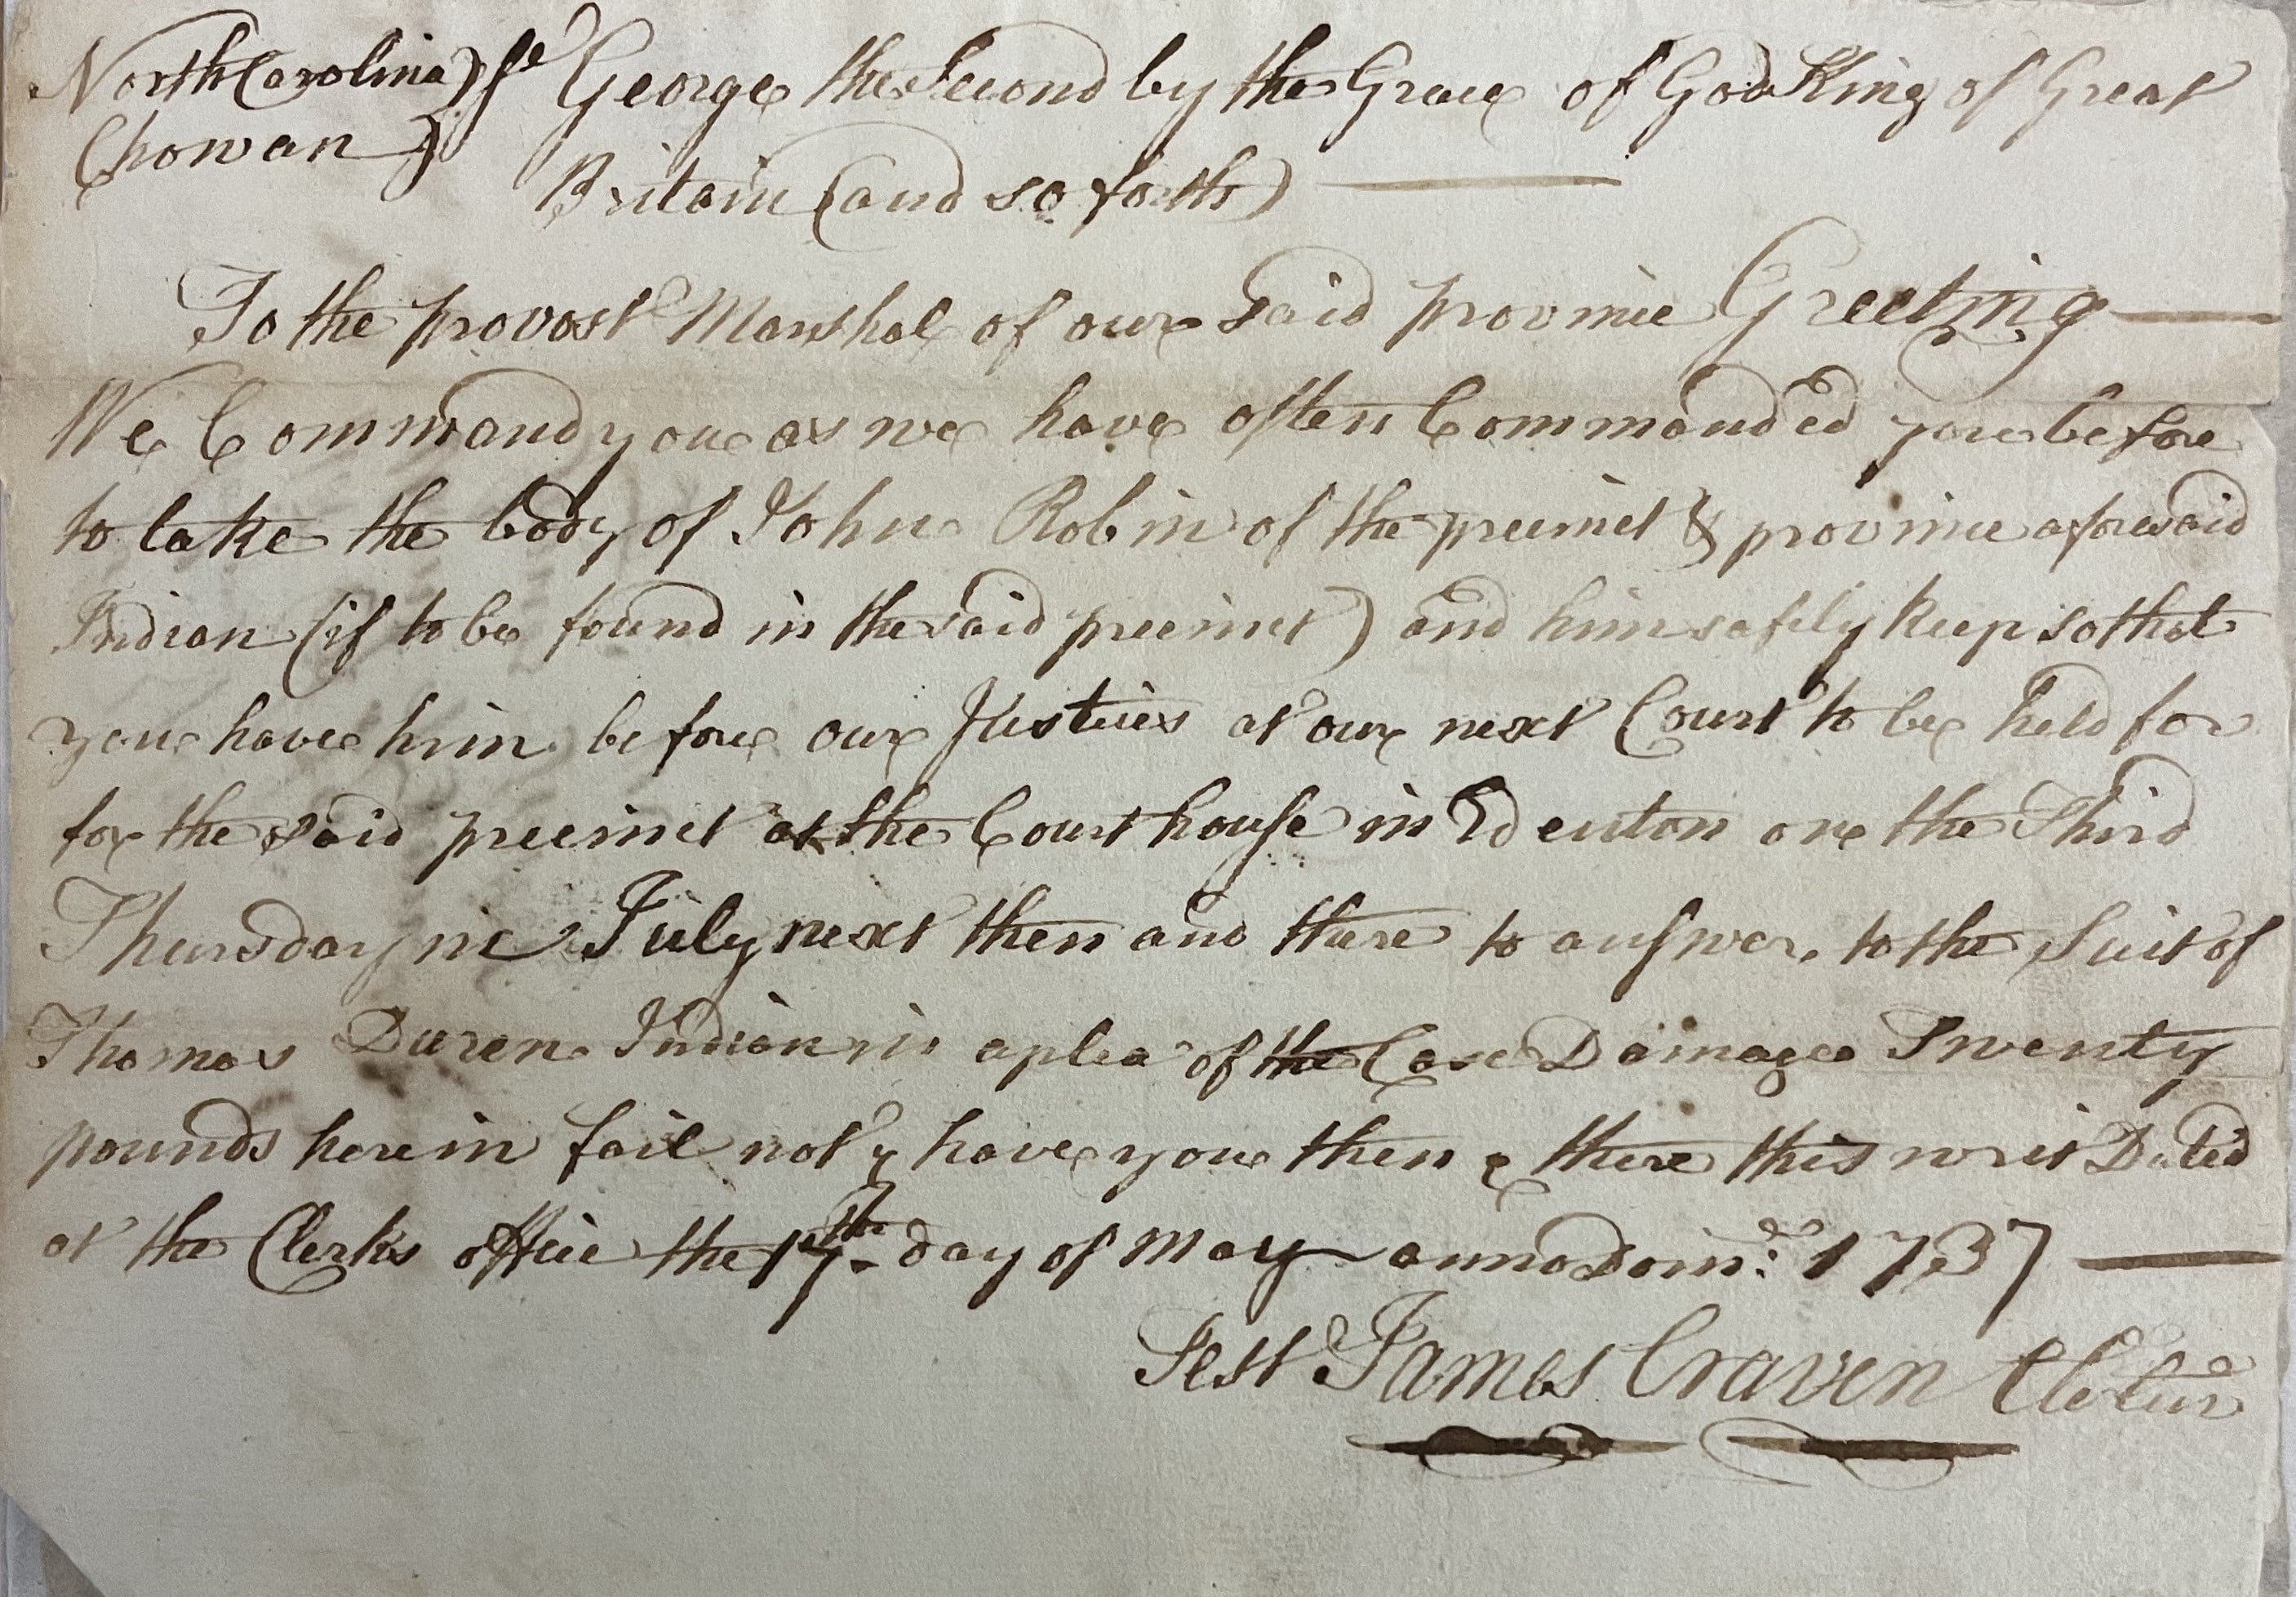 North Carolina) sc George the Second by the Grace of God King of Great
Chowan )
Britain (and so forth)
To the provost Marshal of our said province Greeting
We Command you as we have often Commanded you before
to take the body of John Robin of the precinct & province aforesaid
Indian (if to be found in the said precinct) and him safely keep so that
you have him before our Justices at our next Court to be held for
for the said precinct at the Court house in Edenton on the Third
Thursday in July next then and there to answer to the Suit of
Thomas Duren Indian in a plea of the Case Damage Twenty
pounds herein fail not & have you then & there this writ Dated
at the Clerks office the 17th day of May anno Dom: 1737
Test James Craven Cler Cur